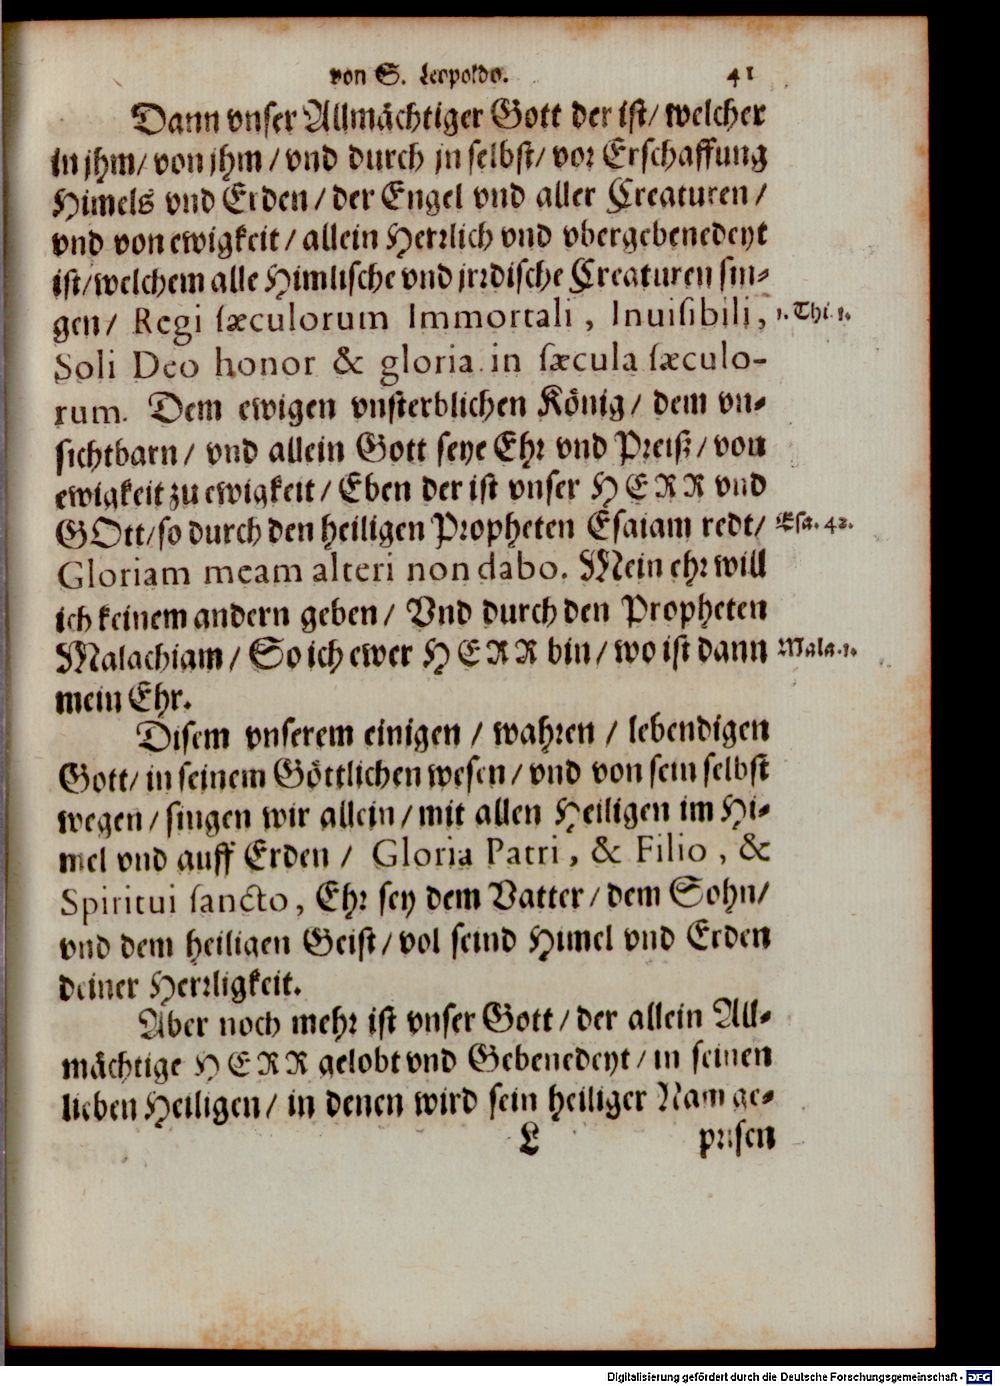 von S. Leopoldo. 41
Dann vnser Allmächtiger Gott der ist/ welcher
in jhm/ von jhm/ vnd durch jn selbst/ vor Erschaffung
Himels vnd Erden/ der Engel vnd aller Creaturen/
vnd von ewigkeit/ allein Herrlich vnd vbergebenedeyt
ist/ welchem alle Himlische vnd jrrdische Creaturen sin-
gen/ Regi sæculorum Immortali, Inuisibili, 1. Thi. 1.
Soli Deo honor & gloria in sæcula sæculo-
rum. Dem ewigen vnsterblichen König/ dem vn-
sichtbarn/ vnd allein Gott seye Ehr vnd Preiß/ von
ewigkeit zu ewigkeit/ Eben der ist vnser HERR vnd
GOtt/ so durch den heiligen Propheten Esaiam redt/ Esa. 42.
Gloriam meam alteri non dabo. Mein ehr will
ich keinem andern geben/ Vnd durch den Propheten
Malachiam/ So ich ewer HERR bin/ wo ist dann Mala. 1.
mein Ehr.
Disem vnserem einigen/ wahren/ lebendigen
Gott/ in seinem Göttlichen wesen/ vnd von sein selbst
wegen/ singen wir allein/ mit allen Heiligen im Hi-
mel vnd auff Erden/ Gloria Patri, & Filio, &
Spiritui sancto, Ehr sey dem Vatter/ dem Sohn/
vnd dem heiligen Geist/ vol seind Himel vnd Erden
deiner Herrligkeit.
Aber noch mehr ist vnser Gott/ der allein All-
mächtige HERR gelobt vnd Gebenedeyt/ in seinen
lieben Heiligen/ in denen wird sein heiliger Nam ge-
L prisen
Digitalisierung gefördert durch die Deutsche Forschungsgemeinschaft - DFG